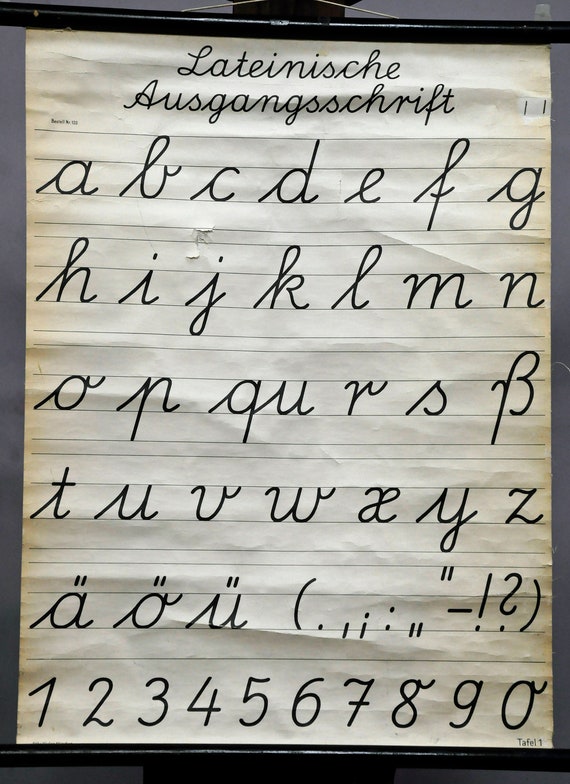 Lateinische
Ausgangsschrift
Bestell Nr. 155
a b c d e f g
h i j k l m n
o p qu r s ß
t u v w x y z
ä ö ü (. , ; : „ " – ! ?)
1 2 3 4 5 6 7 8 9 0
Tafel 1